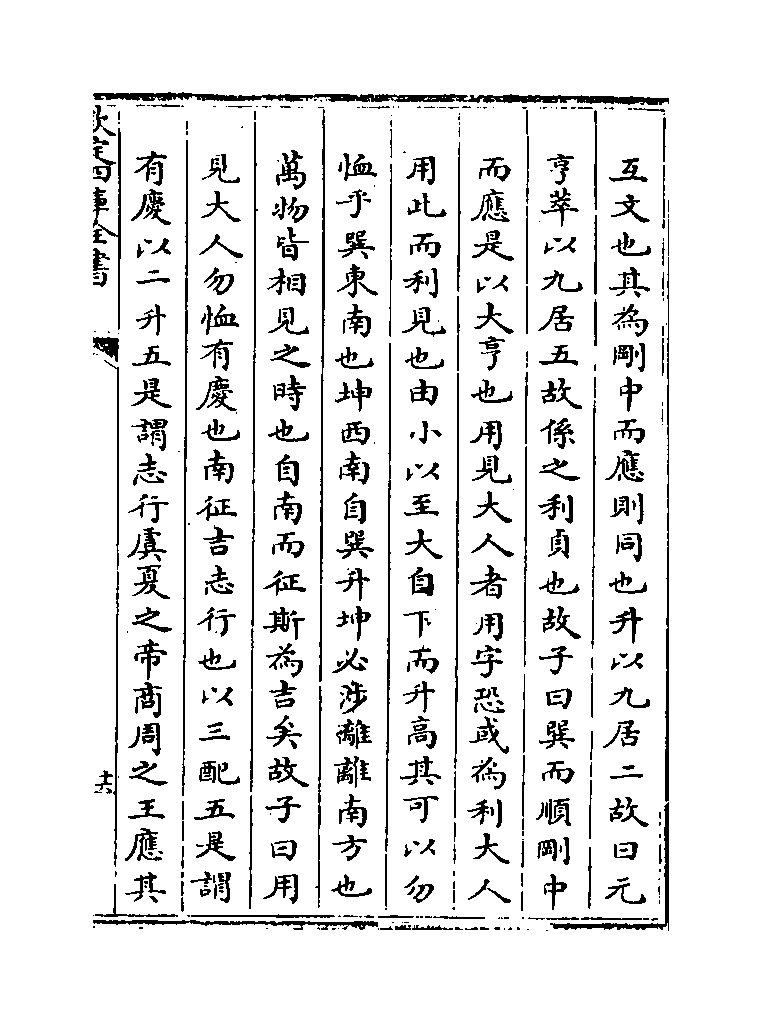 互文也其為剛中而應則同也升以九居二故曰元
亨萃以九居五故係之利貞也故子曰巽而順剛中
而應是以大亨也用見大人者用字恐或為利大人
用此而利見也由小以至大自下而升高其可以勿
恤乎巽東南也坤西南自巽升坤必涉離離南方也
萬物皆相見之時也自南而征斯為吉矣故子曰用
見大人勿恤有慶也南征吉志行也以三配五是謂
有慶以二升五是謂志行虞夏之帝商周之王應其
欽定四庫全書
十六